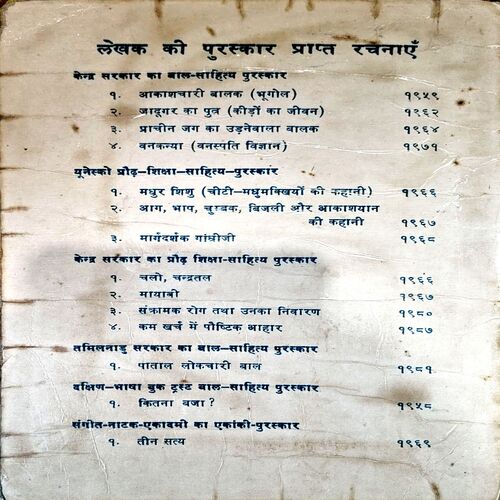 लेखक की पुरस्कार प्राप्त रचनाएँ
केन्द्र सरकार का बाल-साहित्य पुरस्कार
१. आकाशचारी बालक (भूगोल) १९५९
२. जादूगर का पुत्र (कीड़ों का जीवन) १९६२
३. प्राचीन जग का उड़नेवाला बालक १९६४
४. वनकन्या (वनस्पति विज्ञान) १९७१
यूनेस्को प्रौढ़-शिक्षा-साहित्य-पुरस्कार
१. मधुर शिशु (चींटी-मधुमक्खियों की कहानी) १९६६
२. आग, भाप, चुम्बक, बिजली और आकाशयान
की कहानी १९६७
३. मार्गदर्शक गांधीजी १९६८
केन्द्र सरकार का प्रौढ़ शिक्षा-साहित्य पुरस्कार
१. चलो, चन्द्रतल १९६६
२. मायावी १९६७
३. संक्रामक रोग तथा उनका निवारण १९८०
४. कम खर्च में पौष्टिक आहार १९८७
तमिलनाडु सरकार का बाल-साहित्य पुरस्कार
१. पाताल लोकचारी बाल १९८१
दक्षिण-भाषा बुक ट्रस्ट बाल-साहित्य पुरस्कार
१. कितना बजा ? १९५८
संगीत-नाटक-एकादमी का एकांकी-पुरस्कार
१. तीन सत्य १९६९